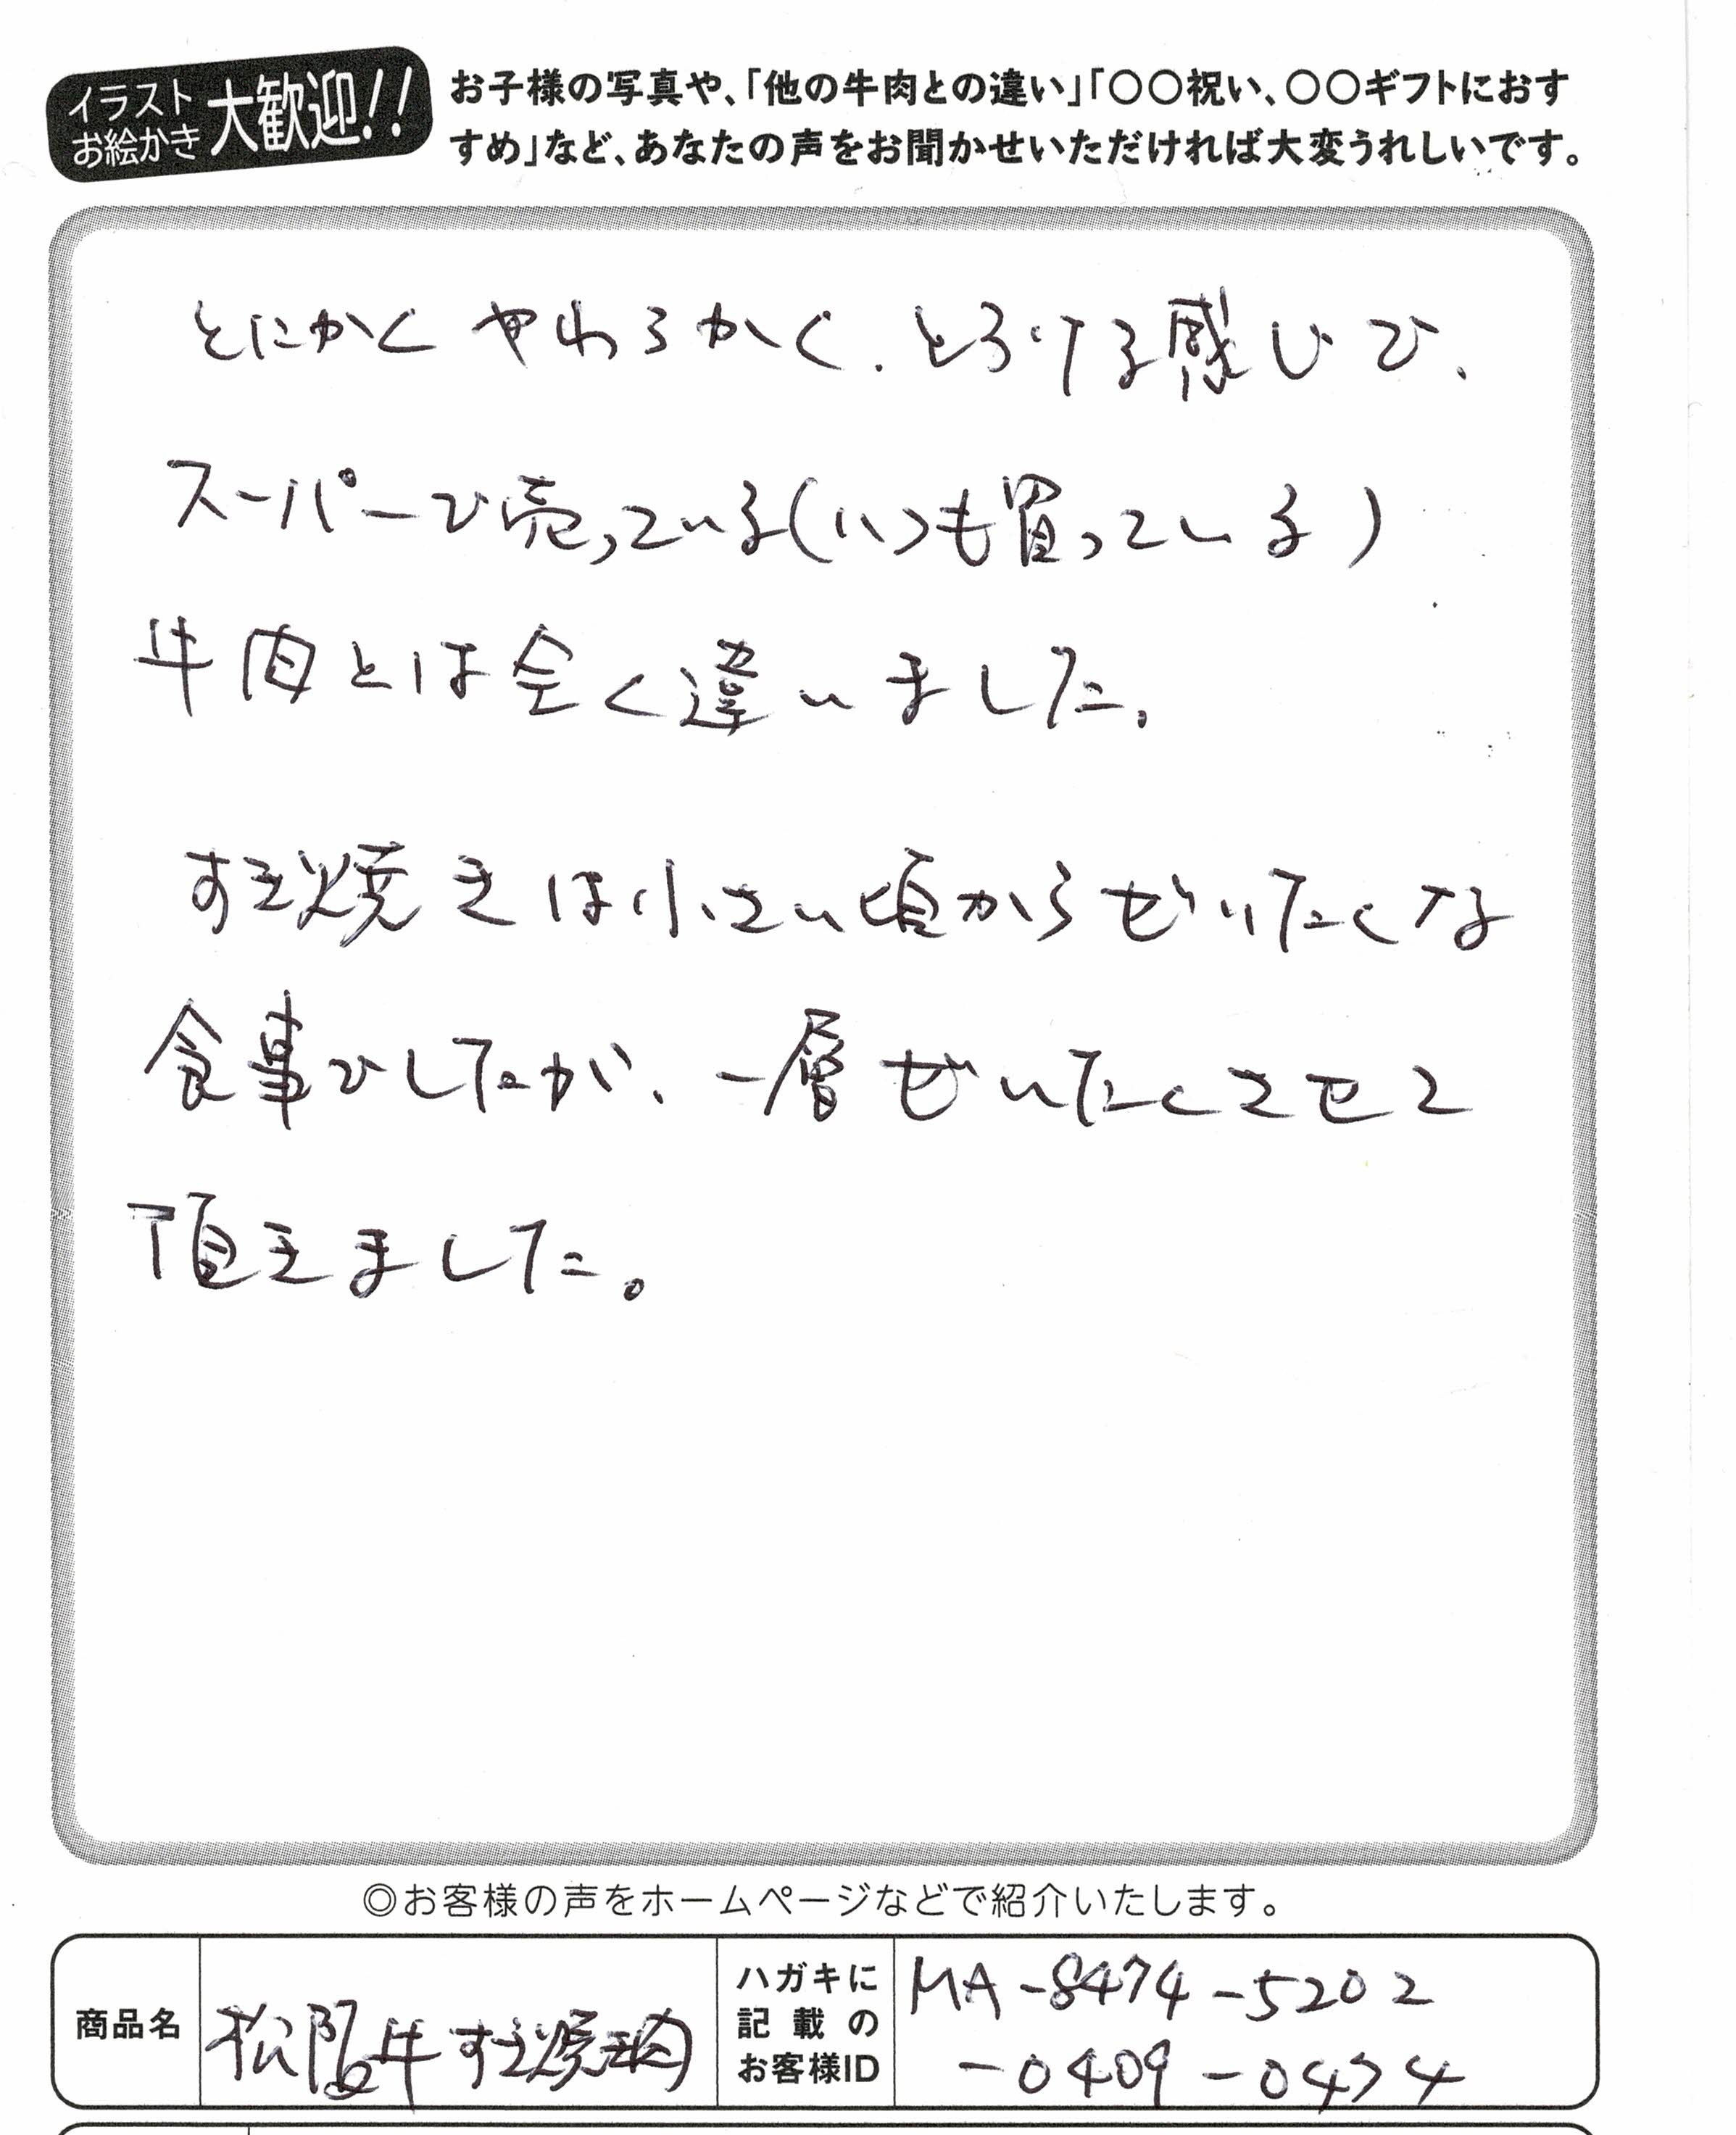 イラスト
お絵かき
大歓迎!!
お子様の写真や、「他の牛肉との違い」「〇〇祝い、〇〇ギフトにおす
すめ」など、あなたの声をお聞かせいただければ大変うれしいです。
とにかくやわらかく、とろける感じで、
スーパーで売っている(いつも買っている)
牛肉とは全く違いました。
すき焼きは小さい頃からぜいたくな
食事でしたが、一層ぜいたくさせて
頂きました。
◎お客様の声をホームページなどで紹介いたします。
商品名
松阪牛すき焼き肉
ハガキに
記載の
お客様ID
MA-8474-5202
-0409-0474